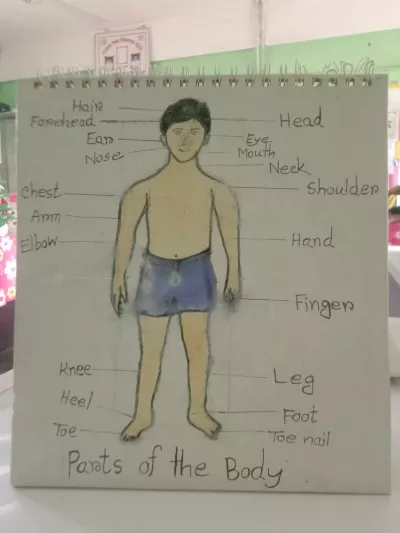 Hair
Forehead
Head
Ear
Eye
Nose
Mouth
Neck
Chest
Shoulder
Arm
Elbow
Hand
Finger
Knee
Leg
Heel
Foot
Toe
Toe nail
Parts of the Body